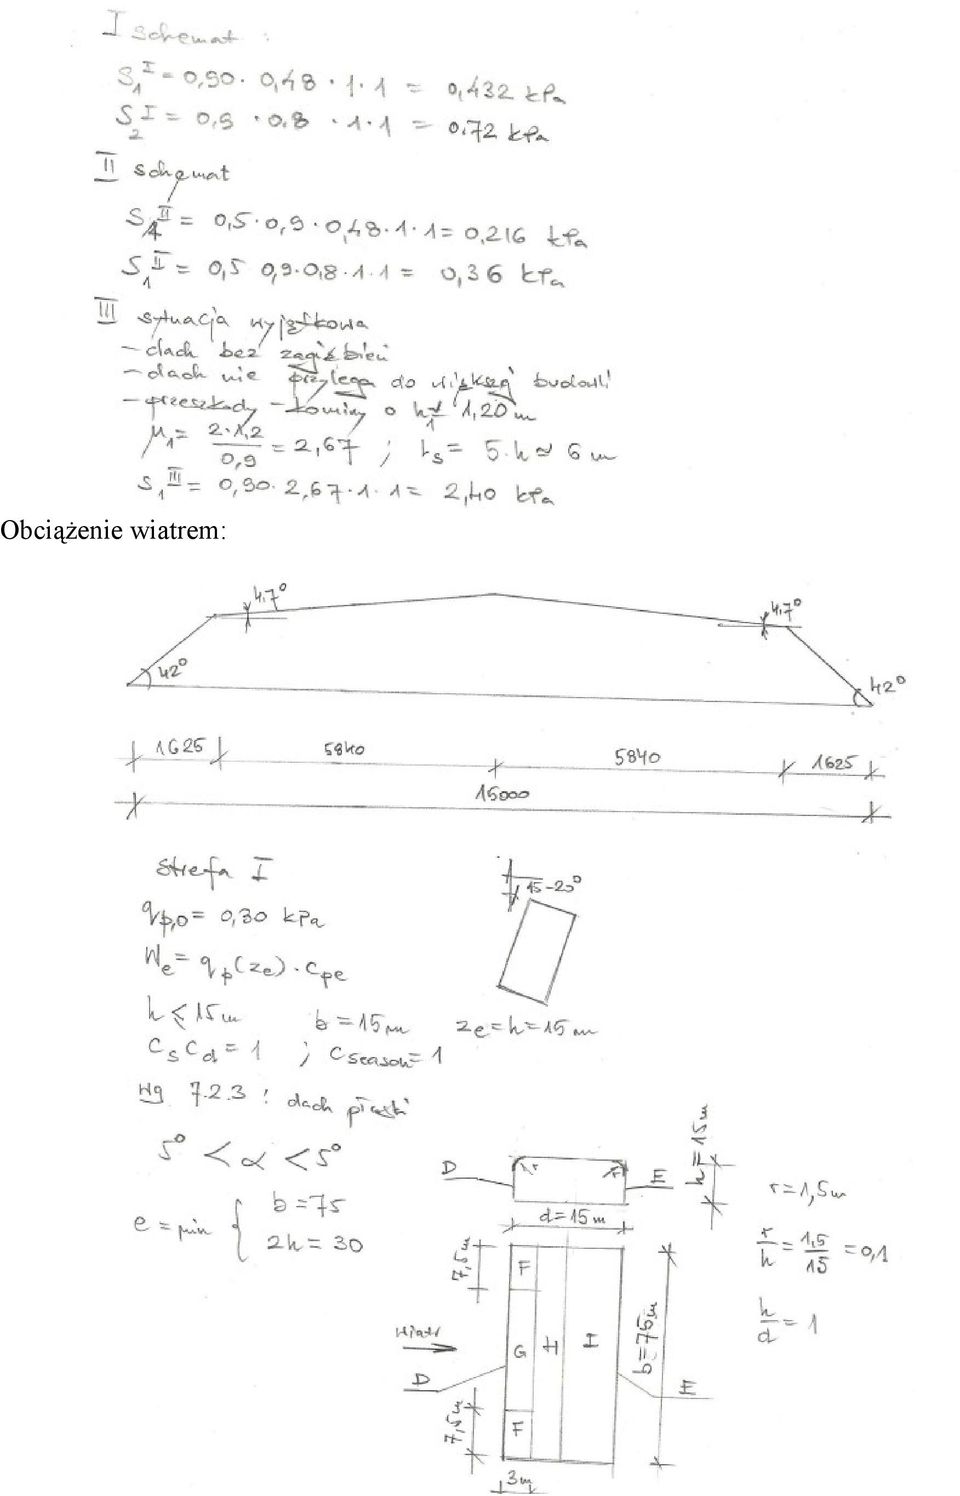 I schemat :
S₁ᴵ = 0,90 · 0,48 · 1 · 1 = 0,432 kPa
S₂ᴵ = 0,9 · 0,8 · 1 · 1 = 0,72 kPa
II schemat
S₁ᴵᴵ = 0,5 · 0,9 · 0,48 · 1 · 1 = 0,216 kPa
S₁ᴵᴵ = 0,5 0,9 · 0,8 · 1 · 1 = 0,36 kPa
III sytuacja wyjątkowa
- dach bez zagłębień
- dach nie przylega do większej budowli
- przeszkody - kominy o h ≠ 1,20 m
μ₁ = 2·1,2 / 0,9 = 2,67 ; ls = 5·h ≈ 6 m
S₁ᴵᴵᴵ = 0,90 · 2,67 · 1 · 1 = 2,40 kPa
Obciążenie wiatrem:
4,7° 4,7°
42° 42°
1625 5840 5840 1625
15000
Strefa I
15-20°
qp,0 = 0,30 kPa
We = qp(ze) · Cpe
h ≤ 15 m b = 15 m ze = h = 15 m
CsCd = 1 ; Cseason = 1
wg 7.2.3 : dach płaski
5° < α < 5°
e = min { b = 75
2h = 30
D r r E h = 15m
d = 15 m
r = 1,5 m
r/h = 1,5/15 = 0,1
h/d = 1
7,5m F
wiatr G H I b = 75m
D E
7,5m F
3m